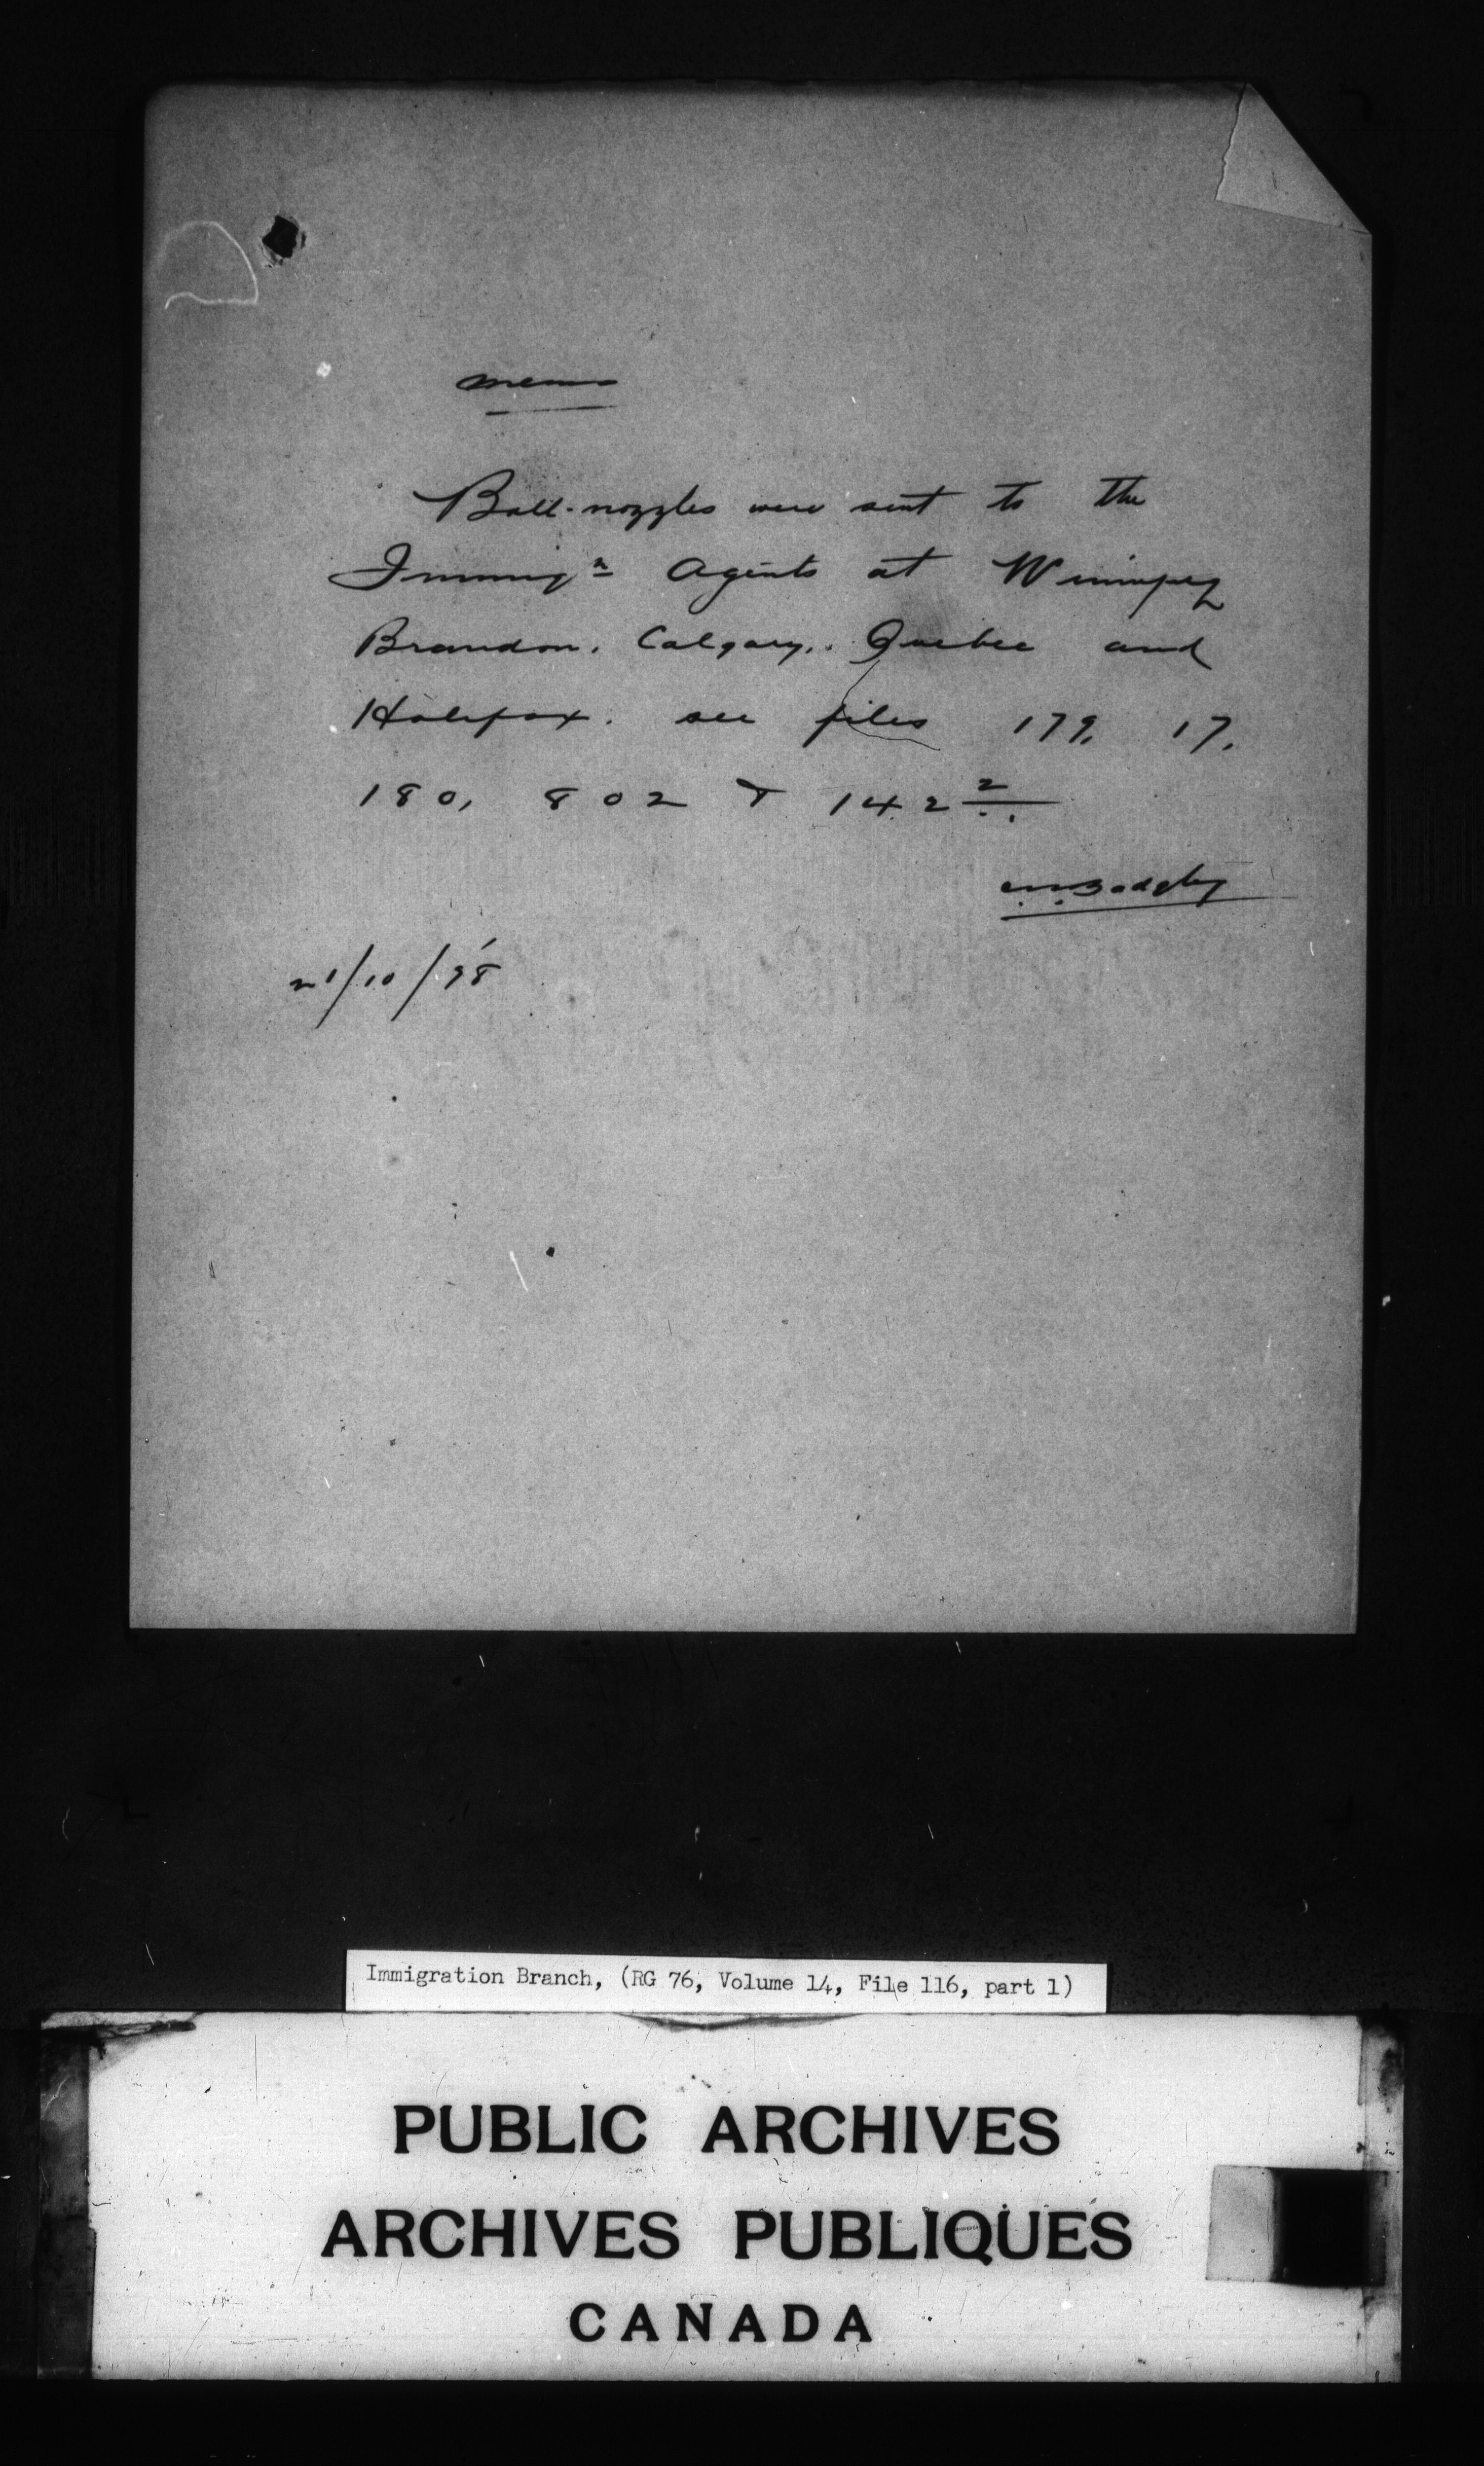 Memo
Ball-nozzles were sent to the
Immigⁿ Agents at Winnipeg
Brandon. Calgary. Quebec and
Halifax. see files 179. 17.
180, 802 & 142²
21/10/98
Immigration Branch, (RG 76, Volume 14, File 116, part 1)
PUBLIC ARCHIVES
ARCHIVES PUBLIQUES
CANADA